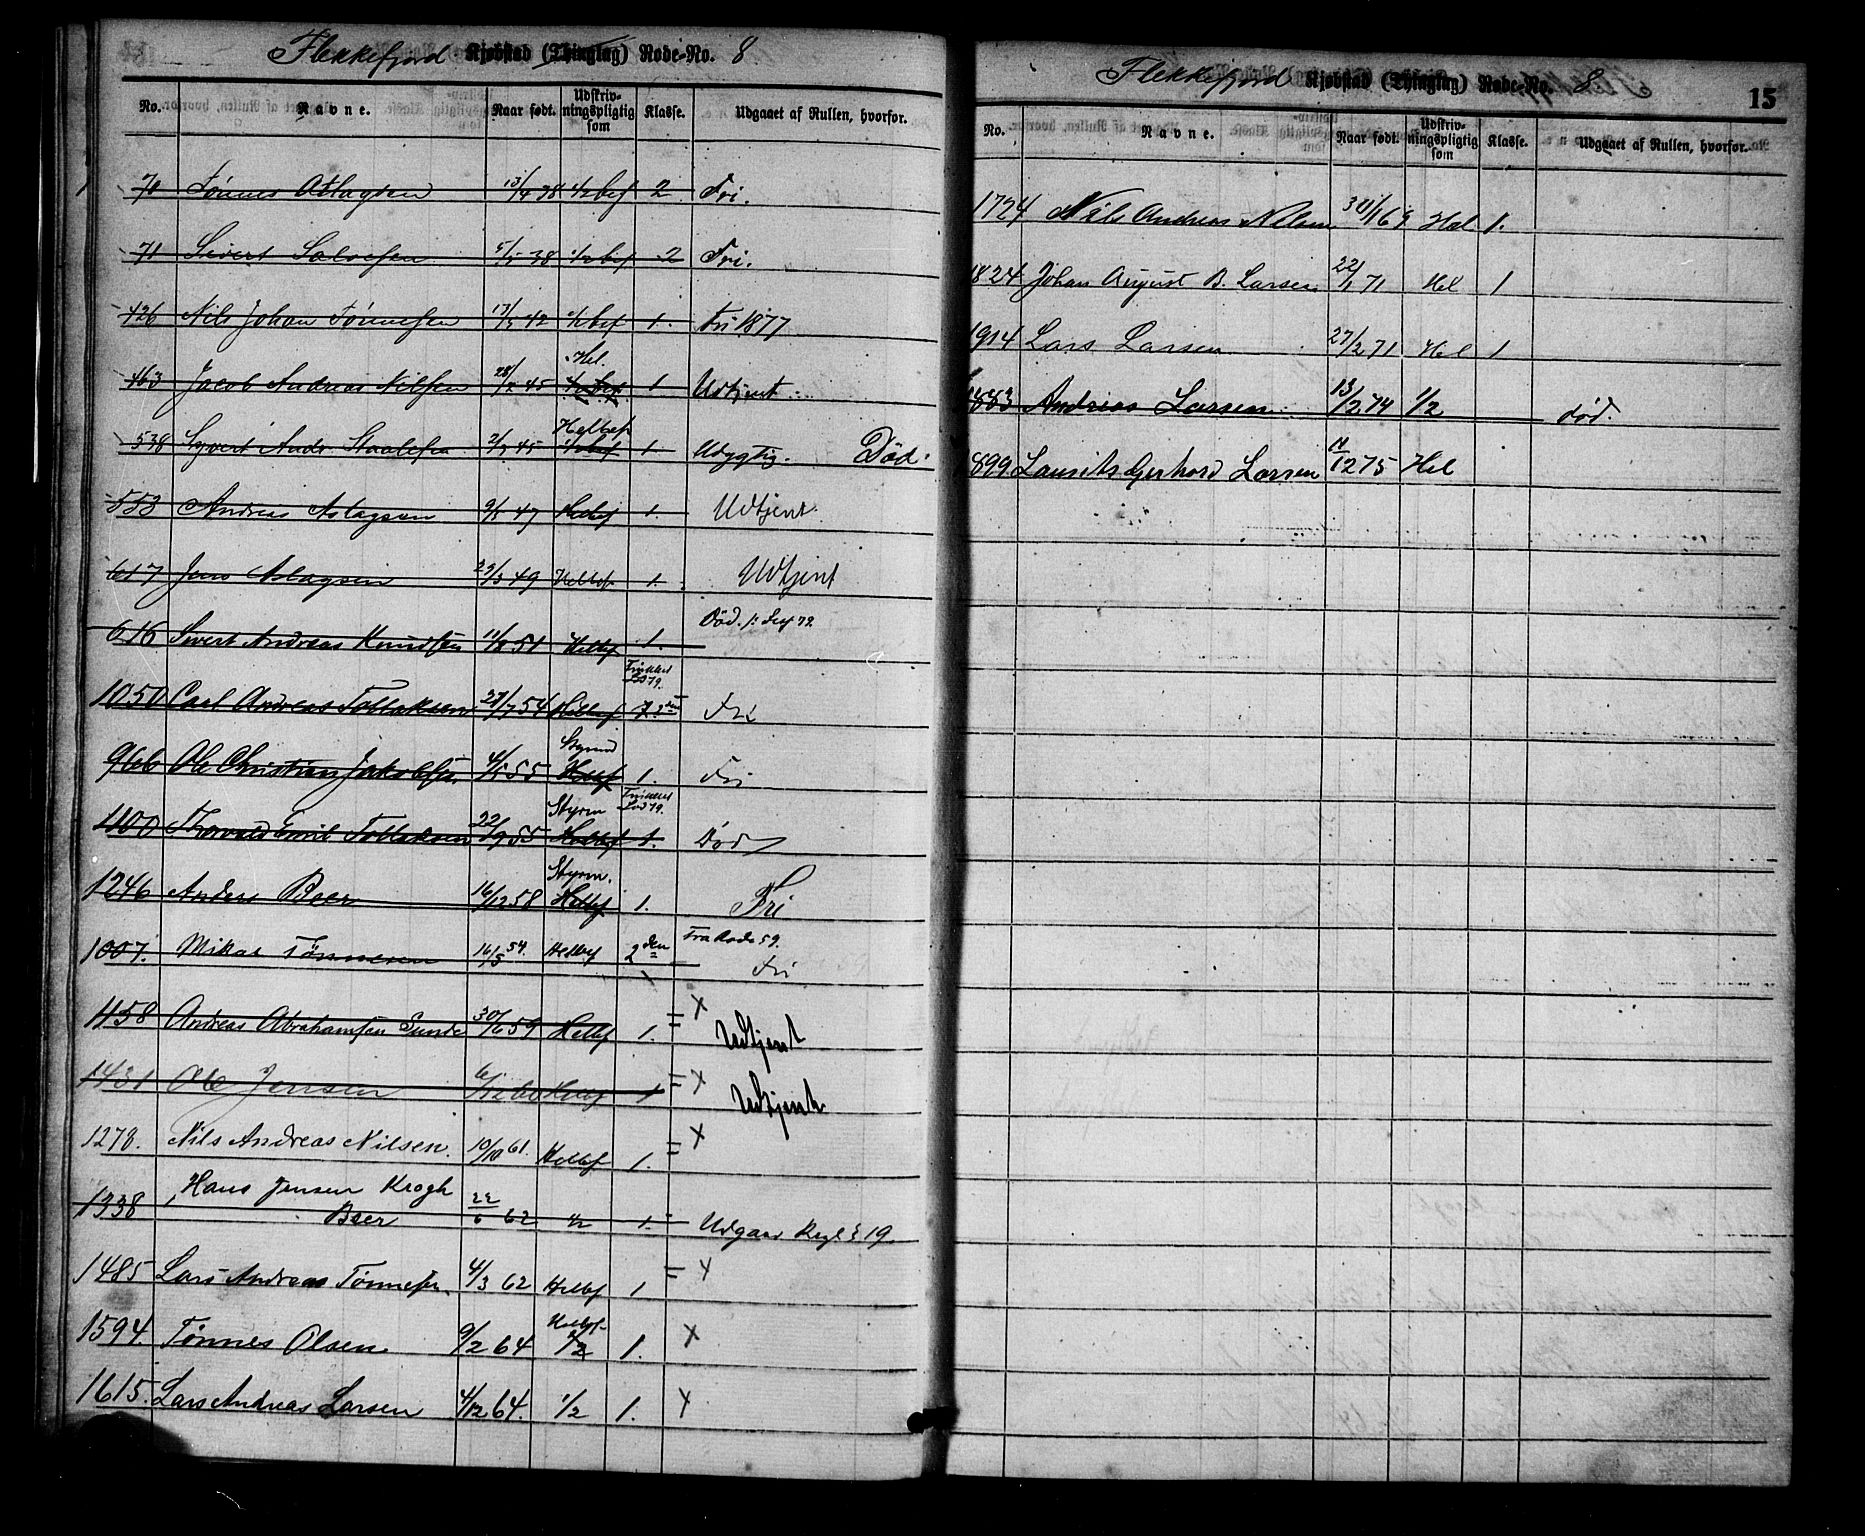 Flekkefjord Kjøbstad (Thinglag) Rode-No. 8
No. Navne. Naar født. Udskriv-ningspligtig som Klasse. Udgaaet af Rullen, hvorfor.
70 Tønnes Aslagsen 13/4 38 1/2 bef 2 Fri.
71 Sivert Salvesen 5/5 38 1/2 bef 2 Fri.
426 Nils Johan Tønnesen 17/5 42 1/2 bef 1. Fri 1877
Hel.
463 Jacob Andreas Nilsen 28/2 45 1/2 bef 1 Udtjent.
Helbef
538 Syvert Andr. Staalesen 2/3 45 1/2 bef 1 Udygtig. Død.
553 Andreas Aslagsen 9/8 47 Helbef 1. Udtjent
617 Jens Aslagsen 23/3 49 Helbef 1. Udtjent
Død.
616 Sivert Andreas Knudsen 11/8 51 Helbf 1.
1050 Carl Andreas Tollaksen 27/7 54 Helbef Fri
Styrmd
966 Ole Christian Jakobsen 4/5 55 Helbf 1. Fri
Styrm
1100 Thorvald Emil Tollaksen 22/9 55 Helbef 1. Død
Styrm.
1246 Anders Beer 16/12 58 Helbf 1. Fri
Fra Rode 59.
1007. Mikal Tønnesen 16/5 54. Helbef 2den Fri
1458 Andreas Abrahamsen Sunde 30/6 59 Helbf 1. = X Udtjent
1431 Ole Jensen 6/12 60 Helbf 1 = X Udtjent
1278. Nils Andreas Nilsen. 10/10 61. Helbf 1. = X
Hans Jensen Krogh
1338 Beer 22/6 62 1/2 1. Udgaar Regl § 19
1485 Lars Andreas Tønnesen 4/3 62 Helbf 1 = X
Helbf
1594. Tønnes Olsen 9/2 64 1/2 1. X
1615. Lars Andreas Larsen 4/12 64. 1/2 1. X
Flekkefjord Kjøbstad (Thinglag) Rode-No. 8
15
No. Navne. Naar født. Udskriv-ningspligtig som Klasse. Udgaaet af Rullen, hvorfor.
1724 Nils Andreas Nilsen 30/1 69 Hel 1.
1824 Johan August B. Larsen 22/1 71 Hel 1
1914 Lars Larsen 27/2 71 Hel 1
1883 Andreas Larsen 13/2 74 1/2 død.
1899 Laurits Gerhard Larsen 12 75 Hel